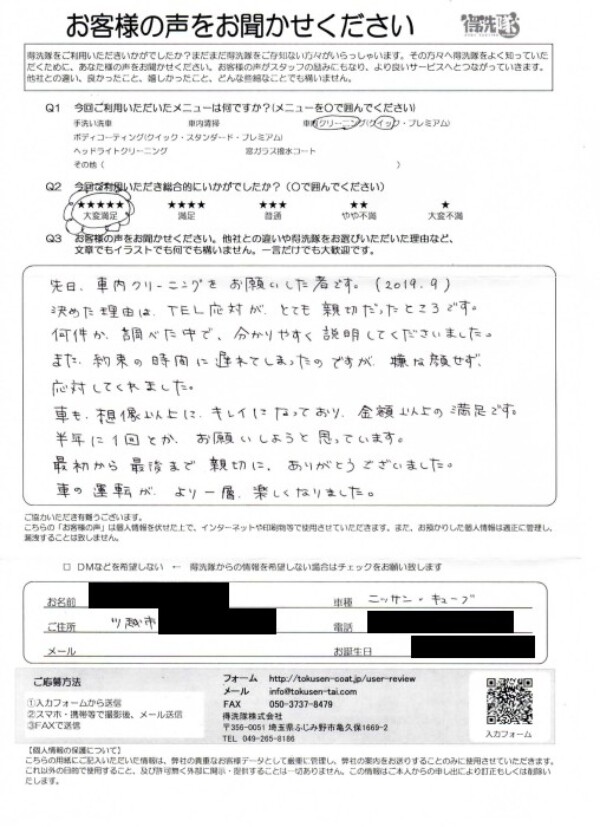 お客様の声をお聞かせください
得洗隊
得洗隊をご利用いただきいかがでしたか?まだまだ得洗隊をご存知ない方々がいらっしゃいます。その方々へ得洗隊をよく知っていた
だくために、あなた様の声をお聞かせください。お客様の声がスタッフの励みにもなり、より良いサービスへとつながっていきます。
他社との違い、良かったこと、嬉しかったこと、どんな些細なことでも構いません。
Q1 今回ご利用いただいたメニューは何ですか?(メニューを○で囲んでください)
手洗い洗車 車内清掃 車内クリーニング(クイック・プレミアム)
ボディコーティング(クイック・スタンダード・プレミアム)
ヘッドライトクリーニング 窓ガラス撥水コート
その他( )
Q2 今回ご利用いただき総合的にいかがでしたか?(○で囲んでください)
★★★★★ ★★★★ ★★★ ★★ ★
大変満足 満足 普通 やや不満 大変不満
Q3 お客様の声をお聞かせください。他社との違いや得洗隊をお選びいただいた理由など、
文章でもイラストでも何でも構いません。一言だけでも大歓迎です。
先日、車内クリーニングをお願いした者です。(2019.9)
決めた理由は、TEL応対が、とても親切だったところです。
何件か、調べた中で、分かりやすく説明してくださいました。
また、約束の時間に遅れてしまったのですが、嫌な顔せず、
応対してくれました。
車も、想像以上に、キレイになっており、金額以上の満足です。
半年に1回とか、お願いしようと思っています。
最初から最後まで親切に、ありがとうございました。
車の運転が、より一層、楽しくなりました。
ご協力いただき有難うございます。
こちらの「お客様の声」は個人情報を伏せた上で、インターネットや印刷物等で使用させていただきます。また、お預かりした個人情報は適正に管理し、
漏洩することは致しません。
□ DMなどを希望しない ← 得洗隊からの情報を希望しない場合はチェックをお願い致します
お名前 車種 ニッサン・キューブ
ご住所 川越市 電話
メール お誕生日
ご応募方法
①入力フォームから送信
②スマホ・携帯等で撮影後、メール送信
③FAXで送信
フォーム http://tokusen-coat.jp/user-review
メール info@tokusen-tai.com
FAX 050-3737-8479
得洗隊株式会社
〒356-0051 埼玉県ふじみ野市亀久保1669-2
TEL 049-265-8186
入力フォーム
【個人情報の保護について】
こちらの用紙にご記入いただいた情報は、弊社の貴重なお客様データとして厳重に管理し、弊社の案内をお送りすることのみに使用させていただきます。
これ以外の目的で使用すること、及び許可無く外部に開示・提供することは一切ありません。この情報はご本人からの申し出により訂正もしくは削除い
たします。